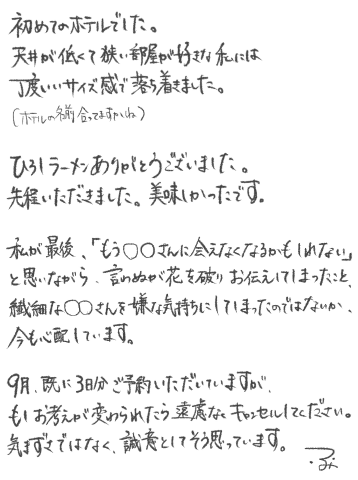 初めてのホテルでした。
天井が低くて狭い部屋が好きな私には
丁度いいサイズ感で落ち着きました。
(ホテルの名前合ってますかね)
ひろしラーメンありがとうございました。
先程いただきました。美味しかったです。
私が最後、「もう〇〇さんに会えなくなるかもしれない」
と思いながら、言わぬが花を破りお伝えしてしまったこと、
繊細な〇〇さんを嫌な気持ちにしてしまったのではないか、
今も心配しています。
9月、既に3日分ご予約いただいていますが、
もしお考えが変わられたら遠慮なくキャンセルしてください。
気まずさではなく、誠意としてそう思っています。